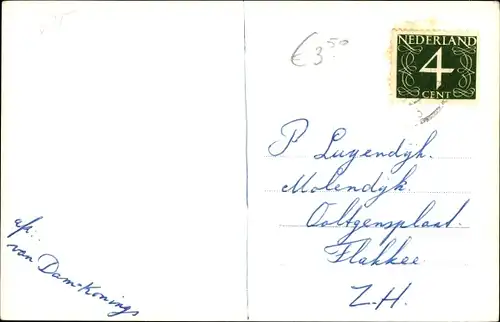 € 3.50
NEDERLAND
4
CENT
P Luyendijk.
Molendijk.
Ooltgensplaat.
Flakkee.
Z.H.
afz:
van Dam-Konings